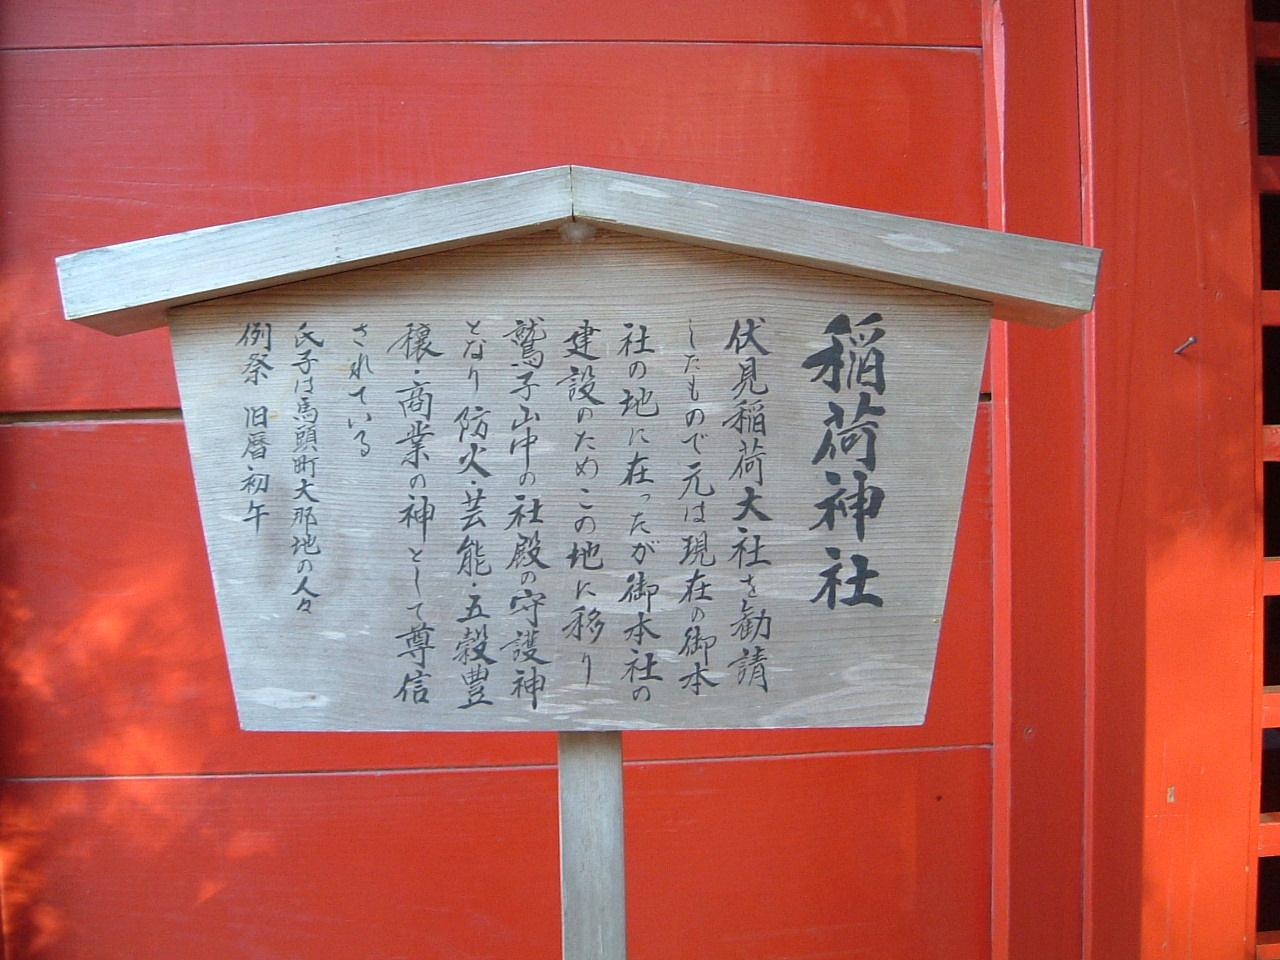 稲荷神社
伏見稲荷大社を勧請
したもので元は現在の御本
社の地に在ったが御本社の
建設のためこの地に移り
鷲子山中の社殿の守護神
となり防火・芸能・五穀豊
穣・商業の神として尊信
されている
氏子は馬頭町大那地の人々
例祭 旧暦初午